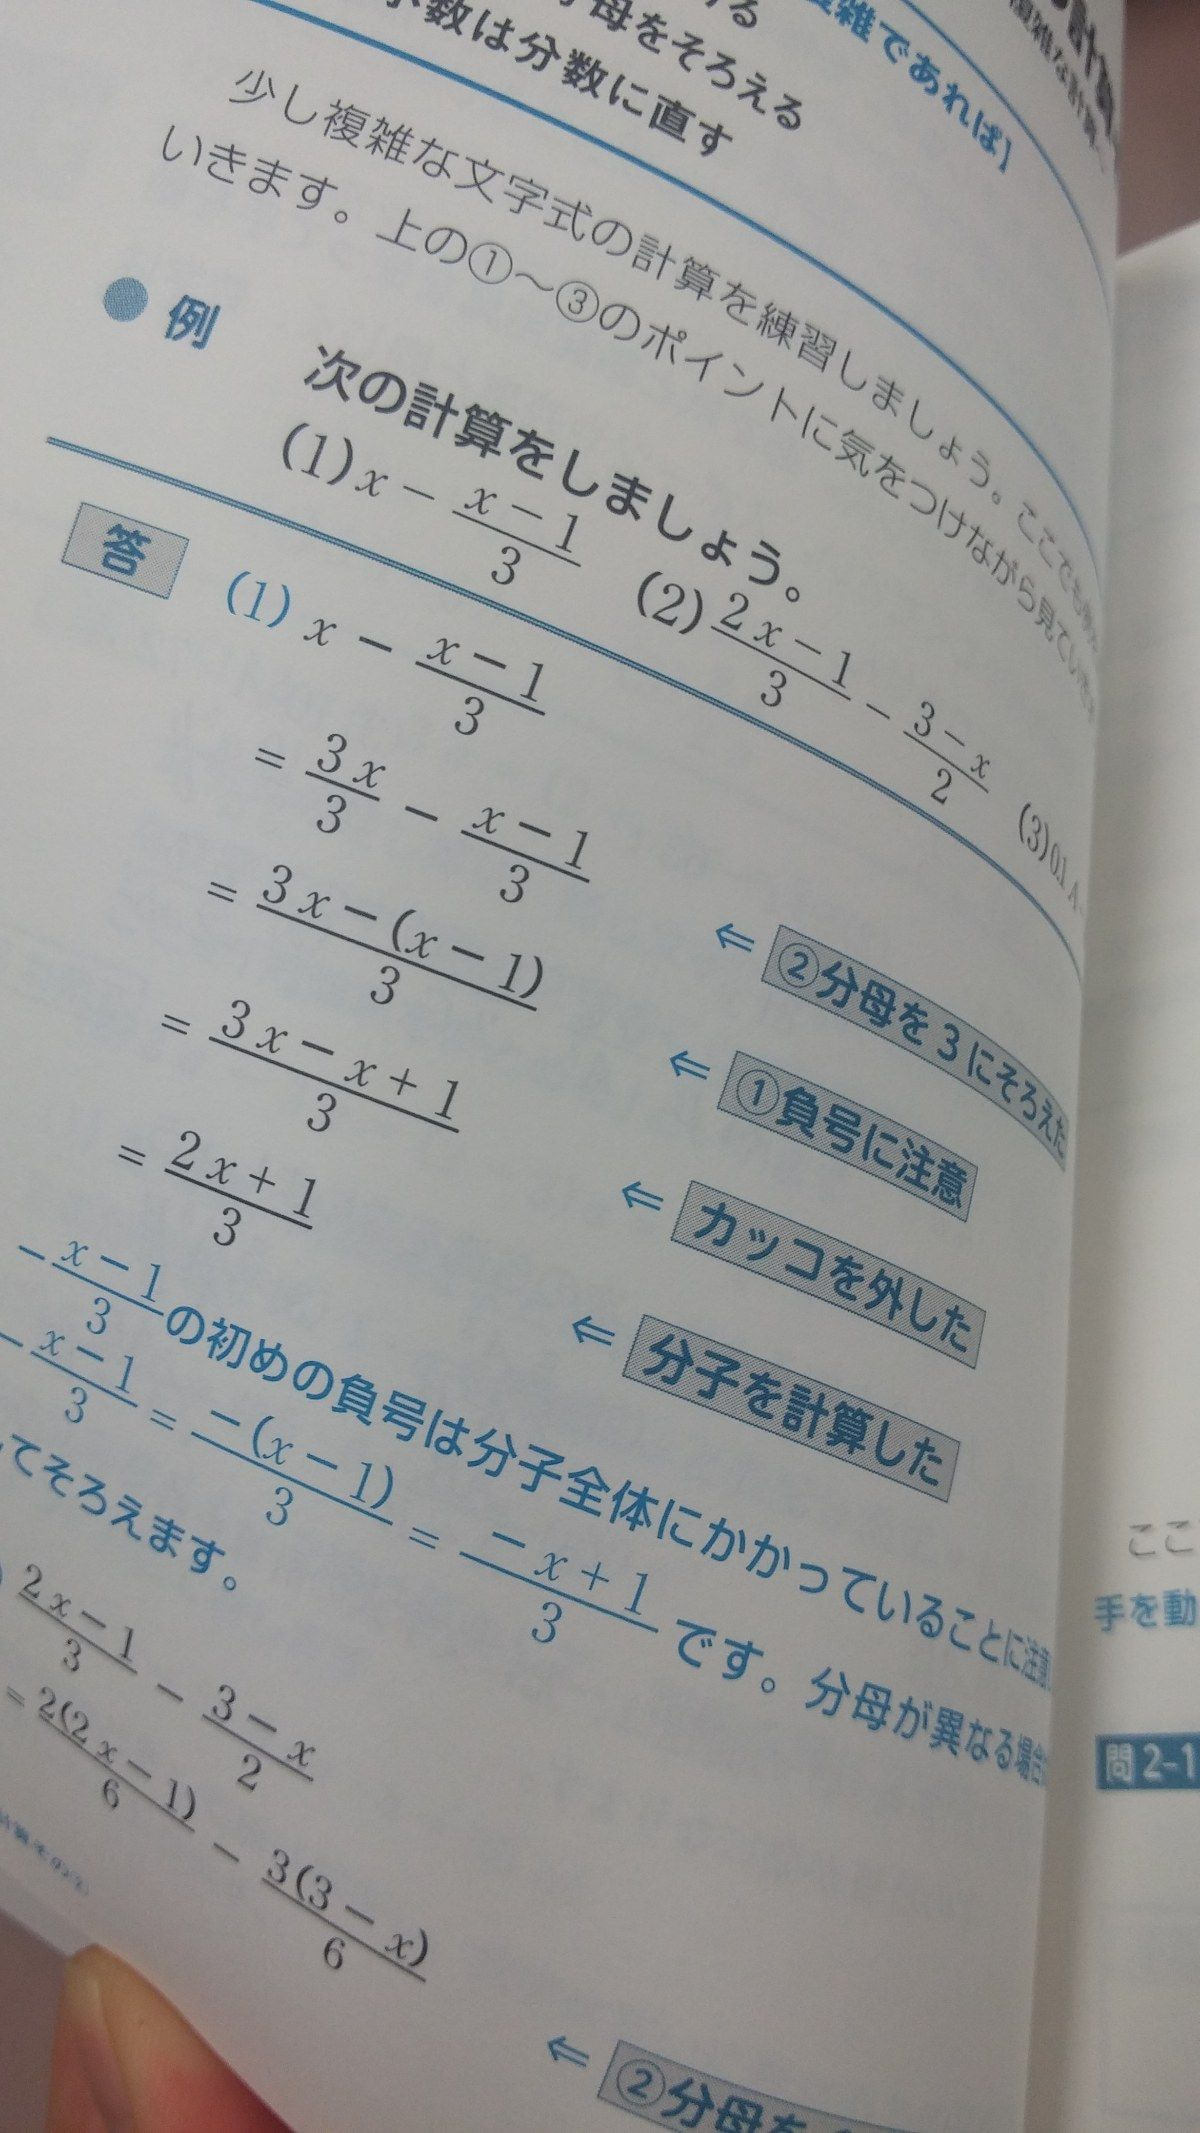 数は分数に直す
母をそろえる
雑であれば】
少し複雑な文字式の計算を練習しましょう。ここでも
いきます。上の①〜③のポイントに気をつけながら見ていき
● 例 次の計算をしましょう。
(1) x − (x − 1)/3 (2) (2x − 1)/3 − (3 − x)/2 (3) 0.1
答 (1) x − (x − 1)/3
= 3x/3 − (x − 1)/3 ⇐ ②分母を3にそろえた
= (3x − (x − 1))/3 ⇐ ①負号に注意
= (3x − x + 1)/3 ⇐ カッコを外した
= (2x + 1)/3 ⇐ 分子を計算した
−(x − 1)/3 の初めの負号は分子全体にかかっていることに注意
−(x − 1)/3 = −(x − 1)/3 = (−x + 1)/3 です。分母が異なる場合
てそろえます。
(2x − 1)/3 − (3 − x)/2
= 2(2x − 1)/6 − 3(3 − x)/6 ⇐ ②分母を
計算その②
ここ
手を動
問2-1